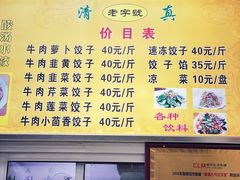 清 老字號 真
价目表
牛肉萝卜饺子 40元/斤
牛肉韭黄饺子 40元/斤
牛肉韭菜饺子 40元/斤
牛肉芹菜饺子 40元/斤
牛肉莲菜饺子 40元/斤
牛肉小茴香饺子 40元/斤
速冻饺子 40元/斤
饺子馅 35元/斤
凉菜 10元/盘
各种
饮料
酸汤水饺